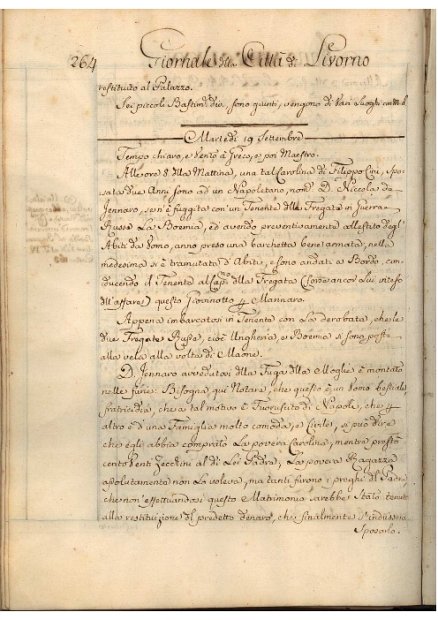 264 Giornale della Città di Livorno
restituito al Palazzo.
Sei piccoli Bastim.ti dia, sono giunti, e vengono di vari Luoghi con
Martedì 19 Settembre
Tempo chiaro, e Vento a Greco, e poi Maestro.
Alle ore 8 della Mattina, una tal Carolina di Filippo Cini, spo-
sata due Anni sono ad un Napoletano, nom.° D. Niccola de
Jennaro, se n'è fuggita con un Tenente della Fregata in Guerra
Russa La Boemia, ed avendo preventivamente allestito degl'
Abiti da Uomo, anno preso una barchetta bene armata, nella
medesima si è tramutata d'Abiti, e sono andati a Bordo, con-
ducendo il Tenente al Cap.no della Fregata (forse ancor lui inteso
dell'affare) questo Giovanotto p Mannaro.
Appena imbarcatosi il Tenente con La derobata, che le
due Fregate Russe, cioè Ungheria, e Boemia si sono poste
alla vela alla volta di Maone.
D. Jennaro avvedutosi della Fuga della Moglie è montato
nelle furie: Bisogna qui Notare, che questo è un Uomo bestiale
fratricidia, che a tal motivo è Fuoruscito di Napoli, che p
altro è d'una Famiglia molto comoda, e Civile, si può dire
che egli abbia comprato La povera Carolina, mentre prestò
cento Venti Zecchini al di Lei Padre, La povera Ragazza
assolutamente non La voleva, ma tanti furono i preghi del Padre
che non effettuandosi questo Matrimonio sarebbe stato tenuto
alla restituzione del predetto denaro, che finalmente s'indusse a
sposarlo.